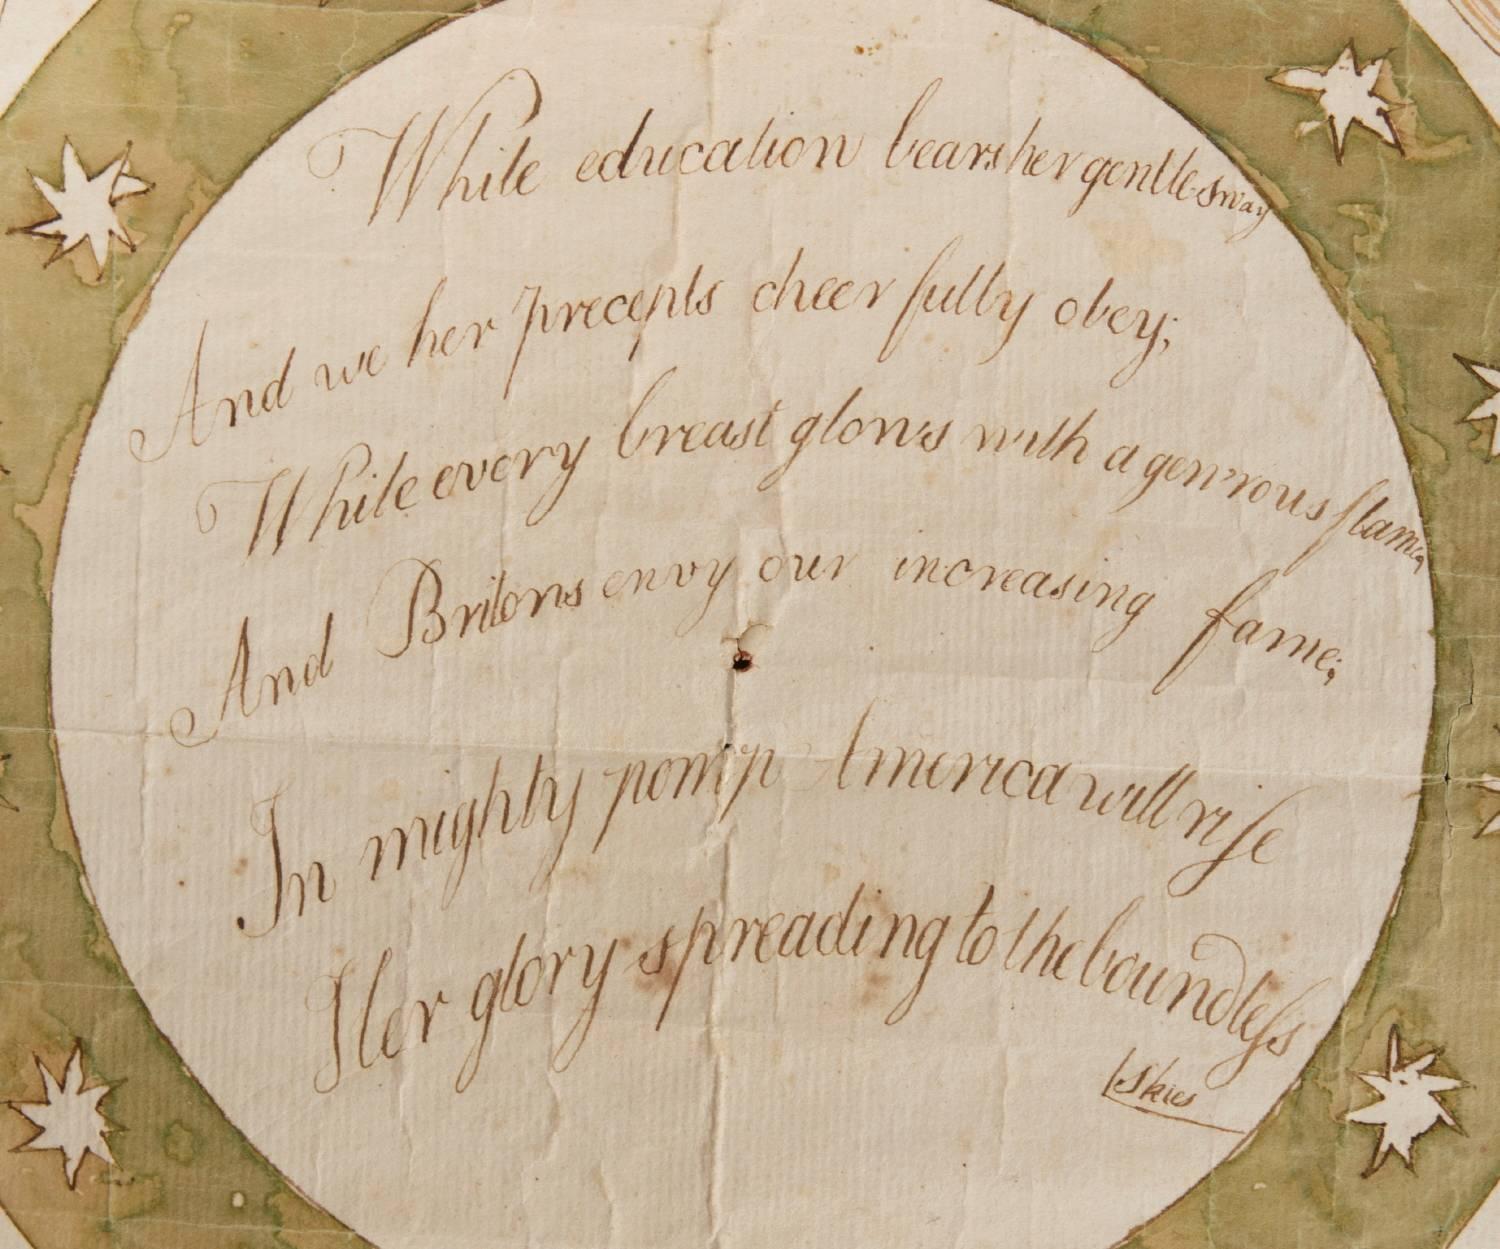 While education bears her gentle sway
And we her precepts cheerfully obey;
While every breast glows with a gen'rous flame,
And Britons envy our increasing fame;
In mighty pomp America will riſe
Her glory spreading to the boundleſs
skies